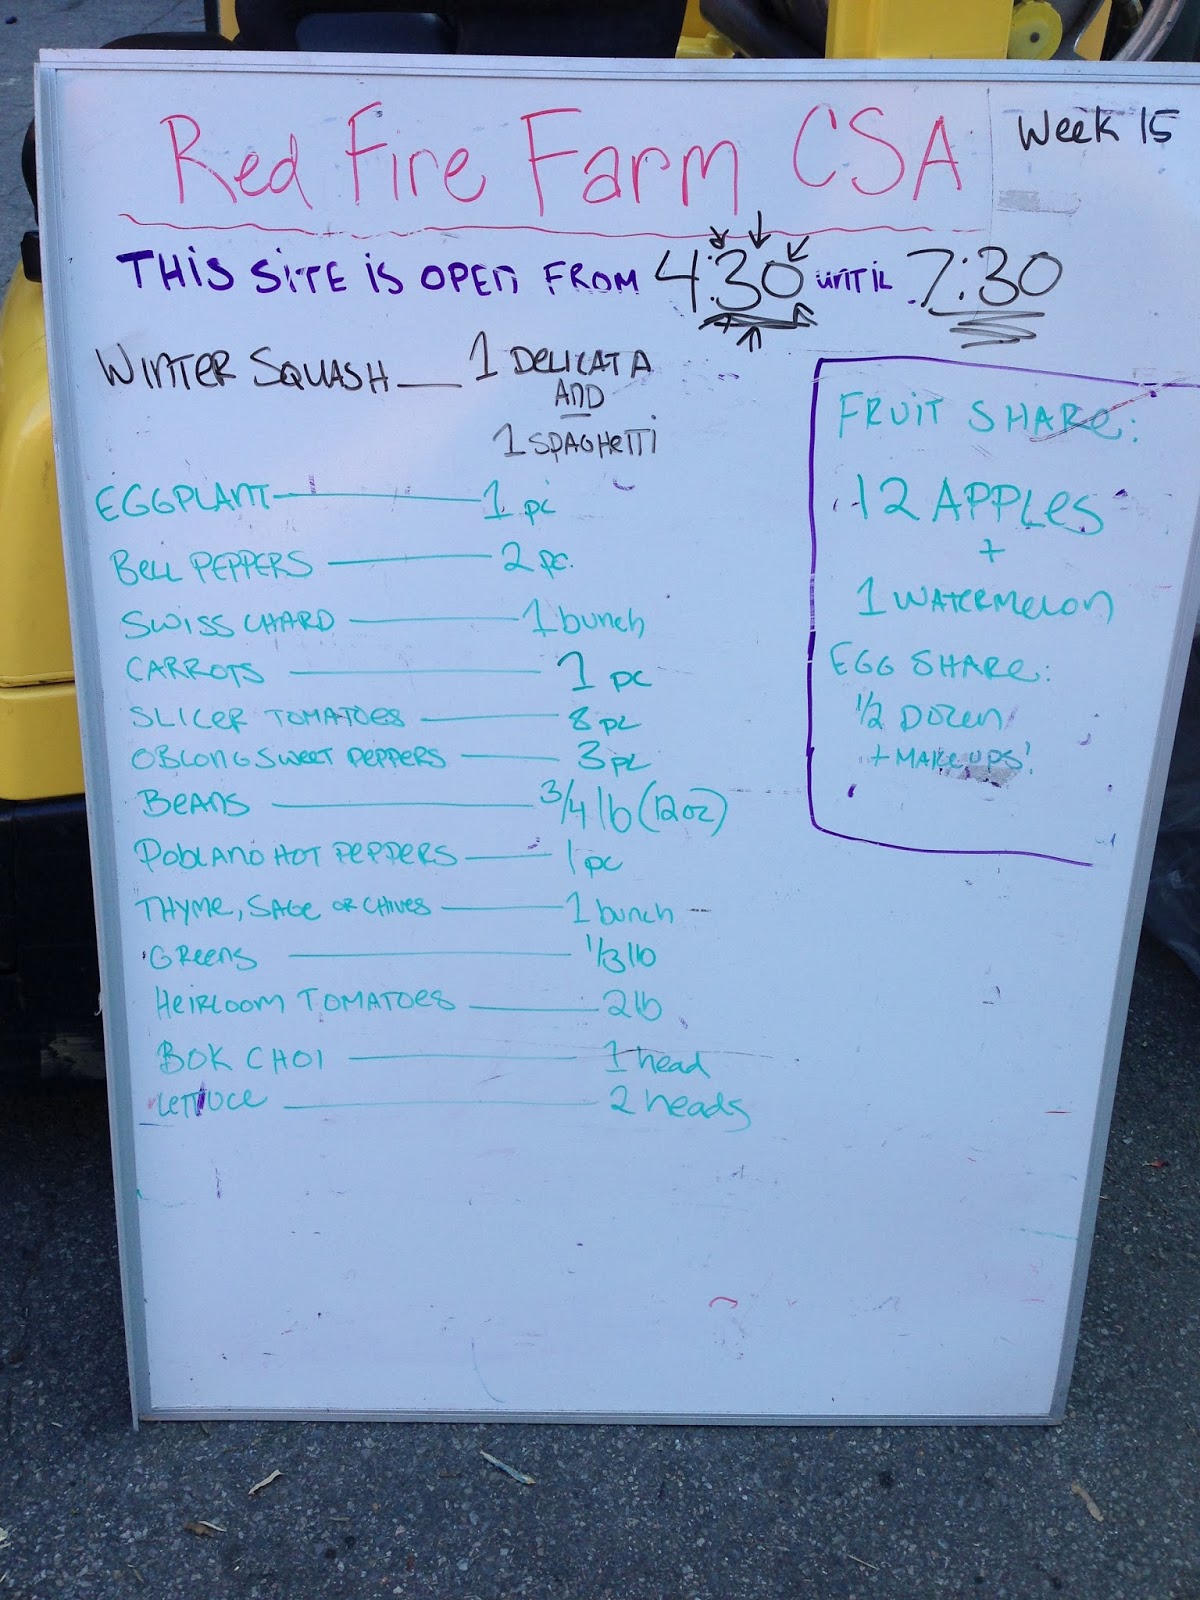 Red Fire Farm CSA
Week 15
THIS SITE IS OPEN FROM 4:30 UNTIL 7:30
WINTER SQUASH 1 DELICATA
AND
1 SPAGHETTI
EGGPLANT 1 pc
BELL PEPPERS 2 pc.
SWISS CHARD 1 bunch
CARROTS 1 pc
SLICER TOMATOES 8 pc
OBLONG SWEET PEPPERS 3 pc
BEANS 3/4 lb (12 oz)
POBLANO HOT PEPPERS 1 pc
THYME, SAGE OR CHIVES 1 bunch
GREENS 1/3 lb
HEIRLOOM TOMATOES 2 lb
BOK CHOI 1 head
LETTUCE 2 heads
FRUIT SHARE:
12 APPLES
+
1 WATERMELON
EGG SHARE:
1/2 DOZEN
+ MAKE UPS!